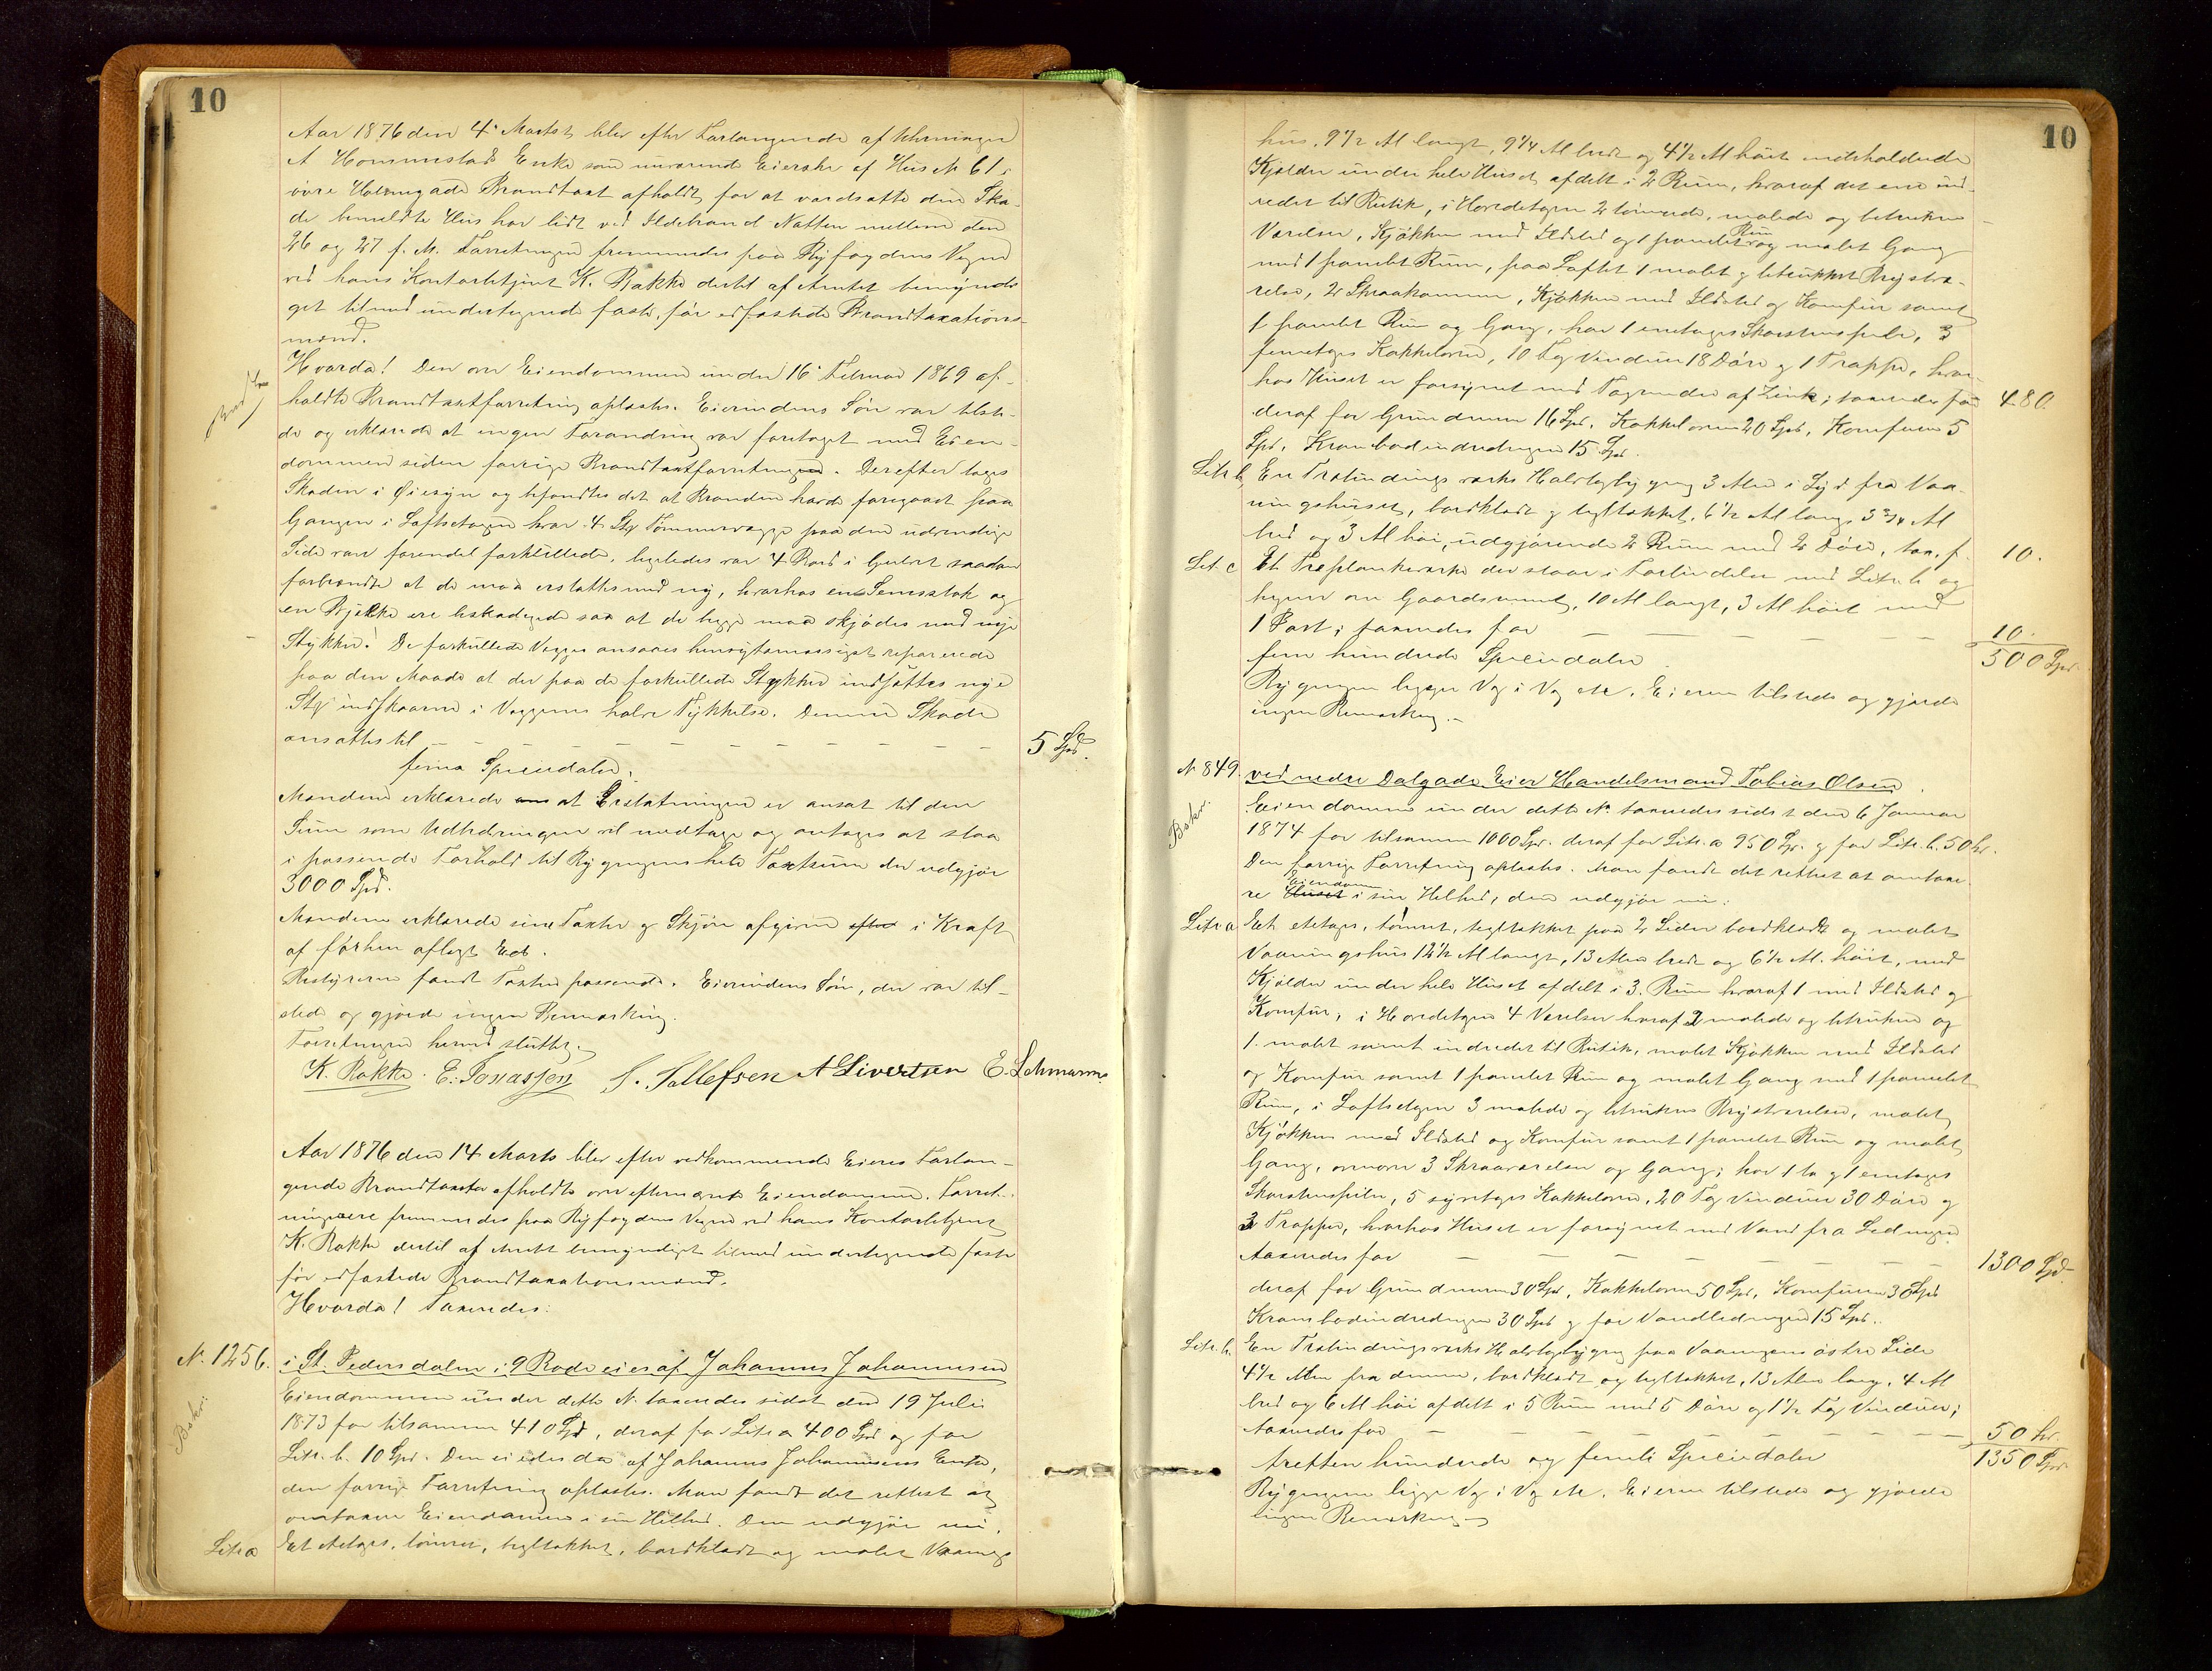 10
Aar 1876 den 4' Marts blev efter Forlangende af
A Hommestads Enke som nuværende Eierske af Hus N 61 i
øvre Holmegade Brandtaxt afholdt for at værdsætte den Ska-
de bemeldte Hus har lidt ved Ildebrand Natten mellem den
26 og 27 f. M. Forretningen fremmedes paa Byfogdens Vegne
ved hans Kontorbetjent K. Bakke dertil af Amtet bemyndi-
get tilmed undertegnede faste, før edfæstede Brandtaxations-
mænd.
Hvorda! Den over Eiendommen under 16' Februar 1869 af-
holdte Brandtaxtforretning oplæstes. Eierindens Søn var tilste-
de og erklærede at ingen Forandring var foretaget med Eien-
dommen siden forrige Brandtaxtforretningen. Derefter toges
Skaden i Øiesyn og befandtes det at Branden havde foregaaet paa
Gangen i Loftsetagen hvor 4 Stk Tømmervægge paa den udvendige
Side var forendel forkullede, ligeledes var 4 Bord i Gulvet saadan
forbrændte at de maa erstattes med ny, hvorhos en Remstok og
en Bjelke ere beskadigede saa at de begge maa skjødes med nye
Stykker. De forkullede Vegger ansaaes hensigtsmæssigst reparerede
paa den Maade at der paa de forkullede Stykker indsættes nye
Stk indskaarne i Veggenes halve Tykkelse. Denne Skade
ansattes til - - - - - - - - - - 5 Spd.
fems Speciedaler.
Mændene erklærede at Erstatningen er ansat til den
Sum som Udbedringen vil medtage og antages at staa
i passende Forhold til Bygningens hele Taxtsum der udgjør
3000 Spd.
Mændene erklærede sine Taxter og Skjøn afgivne efter i Kraft
af førhen aflagt Ed.
Bestyreren fandt Taxten passende. Eierindens Søn, der var til-
stede og gjorde ingen Bemærkning.
Forretningen hermed sluttet.
K. Bakke. E. Jonassen S. Tallefsen A Sivertsen E. Lehmann
Aar 1876 den 14 Marts blev efter vedkommende Eieres Forlan-
gende Brandtaxter afholdte over efternævnte Eiendomme. Forret-
ningerne fremmedes paa Byfogdens Vegne ved hans Kontorbetjent
K. Bakke dertil af Amtet bemyndiget tilmed undertegnede faste
før edfæstede Brandtaxationsmænd.
Hvorda! Taxeredes:
N. 1256. i St. Pedersdalen i 9 Rode eies af Johannes Johannesen
Beskr.
Eiendommen under dette N. taxeredes sidst den 19 Juli
1873 for tilsammen 410 Spd, deraf for Litr a 400 Spd og for
Litr. b. 10 Spd. Den eiedes da af Johannes Johannesens Enke,
den forrige Forretning oplæstes. Man fandt det rettest at
omtaxere Eiendommen i sin Helhed. Den udgjør nu.
Litr a Et etetages, tømret, tegltækket, bordklædt og malet Vaanings
10
hus, 9 1/2 Al langt, 9 1/4 Al bredt og 4 1/2 Al høit indeholdende
Kjelder under hele Huset afdelt i 2 Rum, hvoraf det ene ind-
redet til Butik, i Hovedetagen 2 tømrede, malede og betrukne
Værelser, Kjøkken med Ildsted og 1 panelet Rum og malet Gang
med 1 panelet Rum, paa Loftet 1 malet og betrukket Brystvæ-
relse, 2 Skraakamre, Kjøkken med Ildsted og Komfur samt
1 panelet Rum og Gang, har 1 enetages Skorstenspibe, 3
femetages Kakkelovne, 10 Fag Vinduer 18 Døre og 1 Trappe, hvor-
hos Huset er forsynet med Tagrender af Zink; taxeredes for 480.
deraf for Grundmuren 16 Spd, Kakkelovnen 20 Spd, Komfuren 5
Spd, Krambodindredningen 15 Spd.
Litr b En Træbindingsværks Halvtagbygning 3 Alen i Syd fra Vaa-
ningshuset, bordklædt og tegltækket, 6 1/2 Al lang 3 3/4 Al
bred og 3 Al høi, udgjørende 2 Rum med 2 Døre, tax. f. 10.
Lit. c Et Træplankeværk der staar i Forbindelse med Litr. b og
hegner om Gaardsrummet, 10 Al langt, 3 Al høit med
1 Port; taxeredes for - - - - - 10.
fem hundrede Speciedaler. 500 Spd.
Bygningen ligger Veg i Veg etc. Eieren tilstede og gjorde
ingen Bemærkning.
N 849. ved nedre Dalgade Eier Handelsmand Tobias Olsen.
Beskr.
Eiendommen under dette N. taxeredes sidst den 6 Januar
1874 for tilsammen 1000 Spd. deraf for Litr. a 950 Spd. og for Litr. b. 50 hr.
Den forrige Forretning oplæstes. Man fandt det rettest at omtaxe-
re Huset Eiendom i sin Helhed, den udgjør nu:
Litr a Et etetages, tømret, tegltækket paa 2 Sider bordklædt og malet
Vaaningshus 12 1/2 Al langt, 13 Alen bredt og 6 1/2 Al. høit, med
Kjelder under hele Huset afdelt i 3 Rum hvoraf 1 med Ildsted og
Komfur, i Hovedetagen 4 Værelser hvoraf 2 malede og betrukne og
1 malet samt indredet til Butik, malet Kjøkken med Ildsted
og Komfur samt 1 panelet Rum og malet Gang med 1 panelet
Rum, i Loftsetagen 3 malede og betrukne Brystværelser, malet
Kjøkken med Ildsted og Komfur samt 1 panelet Rum og malet
Gang, ovenover 3 Skraaværelser og Gang; har 1 to og 1 enetages
Skorstenspiber, 5 Kakkelovne, 20 Fag Vinduer 30 Døre og
3 Trapper, hvorhos Huset er forsynet med Vand fra Ledningen
taxeredes for - - - - - - 1300 Spd.
deraf for Grundmuren 30 Spd, Kakkelovnen 50 Spd, Komfuren 30 Spd
Krambodindredningen 30 Spd og for Vandledningen 15 Spd.
Litr. b. En Træbindingsværks Halvtagbygning paa Vaaningens østre Side
4 1/2 Alen fra denne, bordklædt og tegltækket, 13 Alen lang, 4 Al
bred og 6 Al høi afdelt i 5 Rum med 5 Døre og 1 1/2 Fag Vinduer;
taxeredes for - - - - - - 50 hr.
tretten hundrede og femti Speciedaler 1350 Spd.
Bygningerne ligge Veg i Veg etc. Eieren tilstede og gjorde
ingen Bemærkning